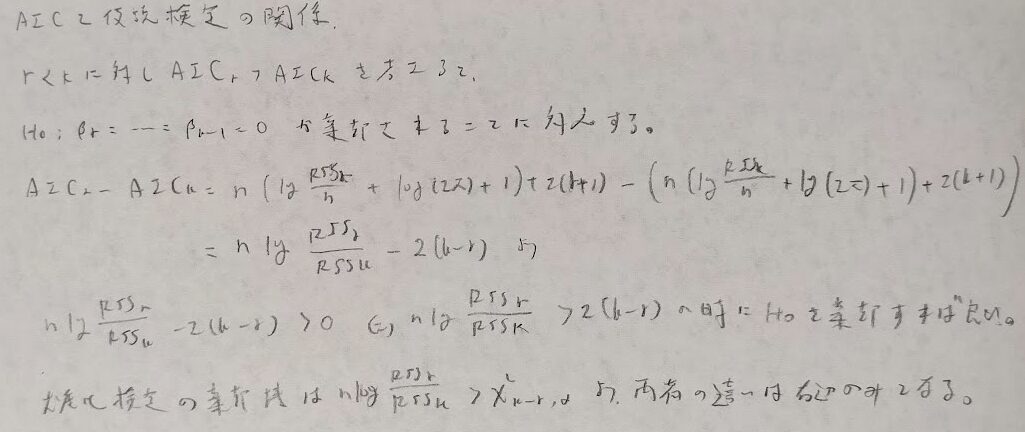 AICと仮説検定の関係.
r<kに対しAIC_r > AIC_kを考えると、
H₀: β_r = … = β_{k-1} = 0 が棄却されることに対応する。
AIC_r - AIC_k = n(log RSS_r/n + log(2π) + 1) + 2(r+1) - (n(log RSS_k/n + log(2π) + 1) + 2(k+1))
= n log RSS_r/RSS_k - 2(k-r) より
n log RSS_r/RSS_k - 2(k-r) > 0 ⇔ n log RSS_r/RSS_k > 2(k-r) の時にH₀を棄却すれば良い。
尤度比検定の棄却域は n log RSS_r/RSS_k > χ²_{k-r,α} より、両者の違いは右辺のみとなる。